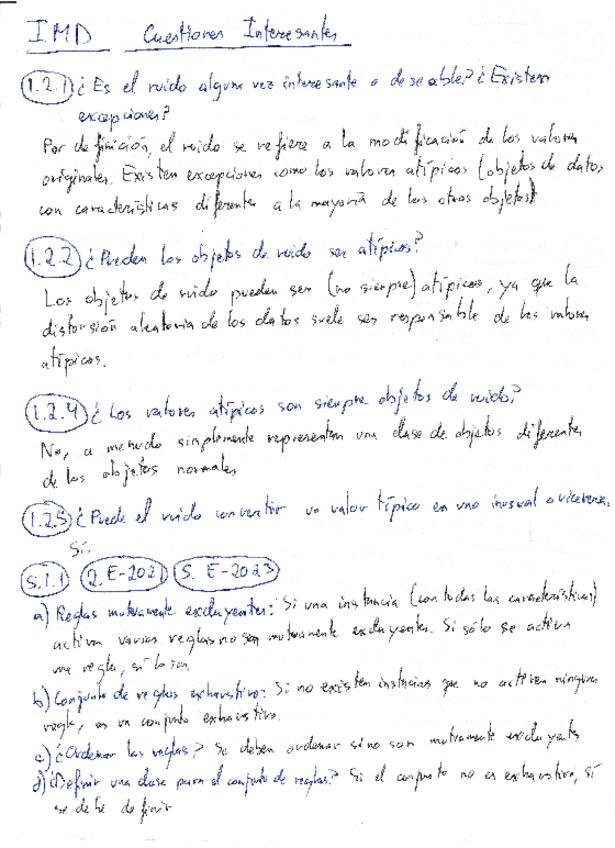 IMD Cuestiones Interesantes
1.2.1 ¿Es el ruido alguna vez interesante o deseable? ¿Existen
excepciones?
Por definición, el ruido se refiere a la modificación de los valores
originales. Existen excepciones como los valores atípicos (objetos de datos
con características diferentes a la mayoría de los otros objetos)
1.2.2 ¿Pueden los objetos de ruido ser atípicos?
Los objetos de ruido pueden ser (no siempre) atípicos, ya que la
distorsión aleatoria de los datos suele ser responsable de los valores
atípicos.
1.2.4 ¿Los valores atípicos son siempre objetos de ruido?
No, a menudo simplemente representan una clase de objetos diferentes
de los objetos normales
1.2.5 ¿Puede el ruido convertir un valor típico en uno inusual o viceversa.
Sí.
5.1.1 2. E-2021 5. E-2023
a) Reglas mutuamente excluyentes: Si una instancia (con todas las características)
activa varias reglas no son mutuamente excluyentes. Si sólo se activa
una regla, sí lo son.
b) Conjunto de reglas exhaustivo: Si no existen instacias que no activen ninguna
regla, es un conjunto exhaustivo.
c) ¿Ordenar las reglas? Se deben ordenar si no son mutuamente excluyents
d) ¿Definir una clase para el conjunto de reglas? Si el conjunto no es exhaustivo, sí
se debe definir